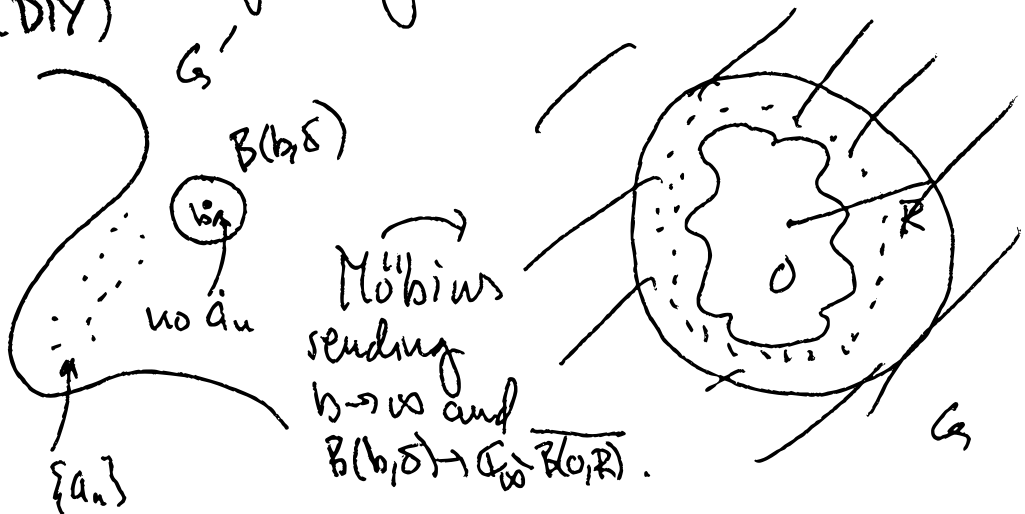 DIY)
G'
B(b,δ)
b
no aₙ
{aₙ}
Möbius
sending
b→∞ and
B(b,δ)→ℂ_∞\ \overline{B(0,R)}.
R
0
G